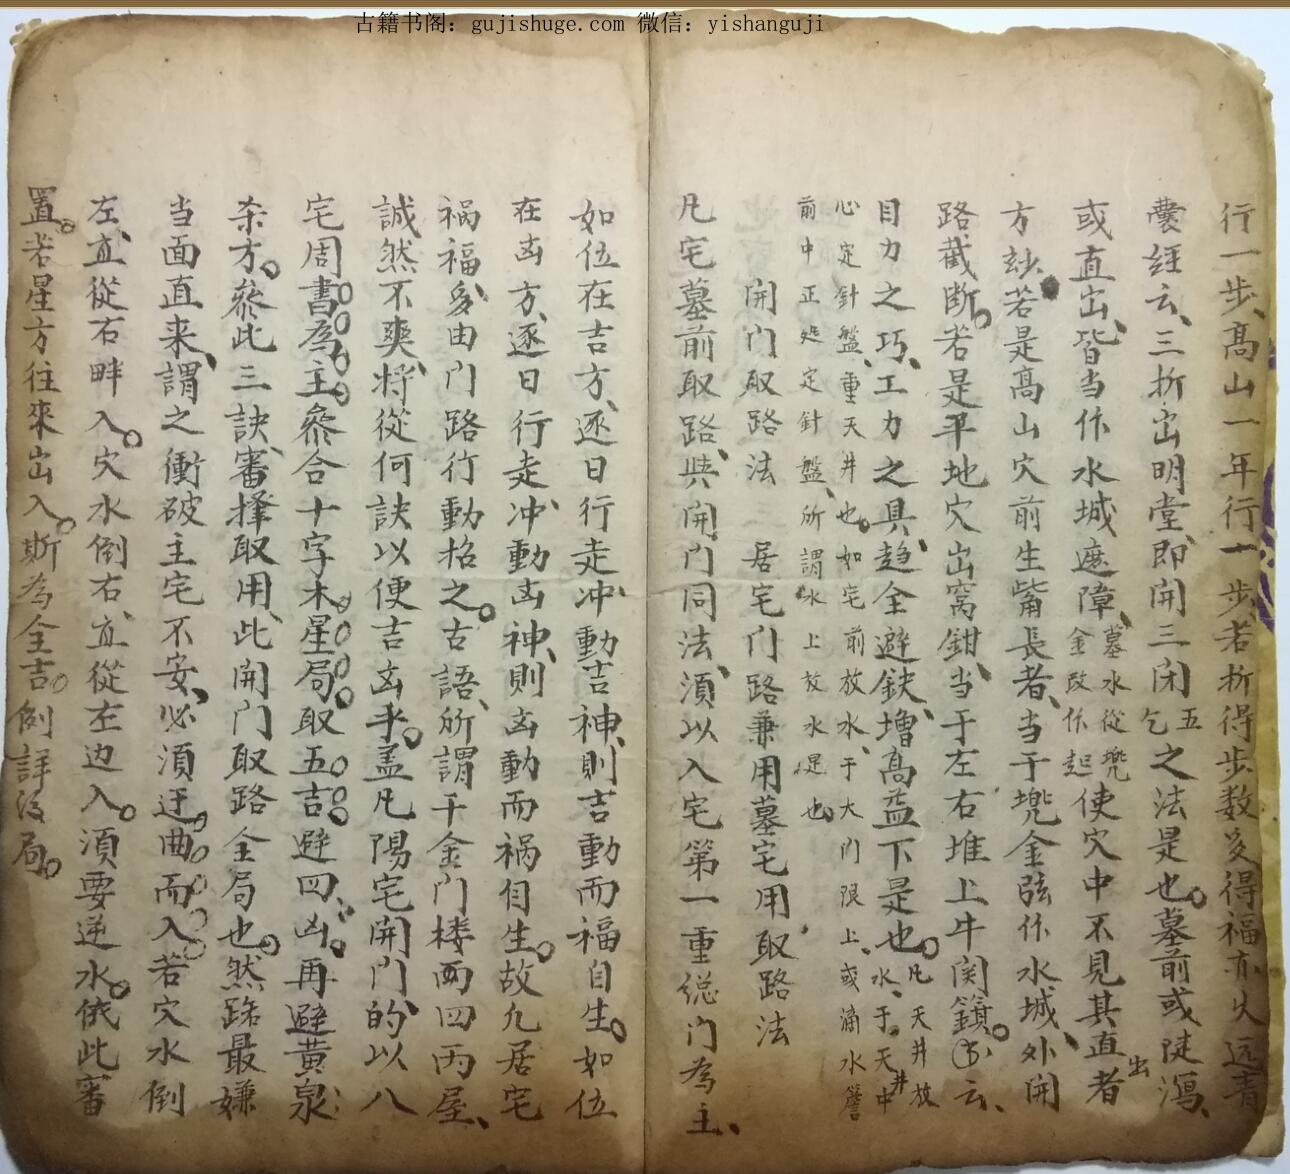 古籍书阁：gujishuge.com 微信：yishanguji
行一步、高山一年行一步、若折得步数多得福亦久远青
囊经云、三折出明堂、即開三闭五乞之法是也。墓前或陡瀉、
或直出、皆当作水城遮障、墓水從兠金敃作起使穴中不見其直出者
方玅若是高山穴前生觜長者、当于兠金弦作水城、外開
路截断。若是平地穴出窩鉗、当于左右堆上牛関鎖。云、
目力之巧、工力之具、趋全避缺、增高益下是也。凡天井放水、于天井中
心定針盤、重天井也。如宅前放水、于大门限上、或滴水簷
前中正处定針盤、所謂氷上放水是也。
開门取路法 居宅门路兼用墓宅用取路法
凡宅墓前取路、與開门同法、須以入宅第一重総门為主、
如位在吉方、逐日行走、冲動吉神、則吉動而福自生。如位
在凶方、逐日行走、冲動凶神、則凶動而祸自生。故凢居宅
祸福多由门路行動招之。古語、所謂千金门楼両四両屋、
誠然不爽、将從何訣以便吉凶乎。盖凡陽宅開门的、以八
宅周書為主、叅合十字木星局取五吉避四凶。再避黄泉
杀方。叅此三訣、審擇取用、此開门取路全局也。然路最嫌
当面直来、謂之衝破主宅不安、必須迂曲而入若穴水倒
左、直從右畔入。穴水倒右、直從左边入。須要逆水。依此審
置。若星方往來出入。斯為全吉。例詳後局。